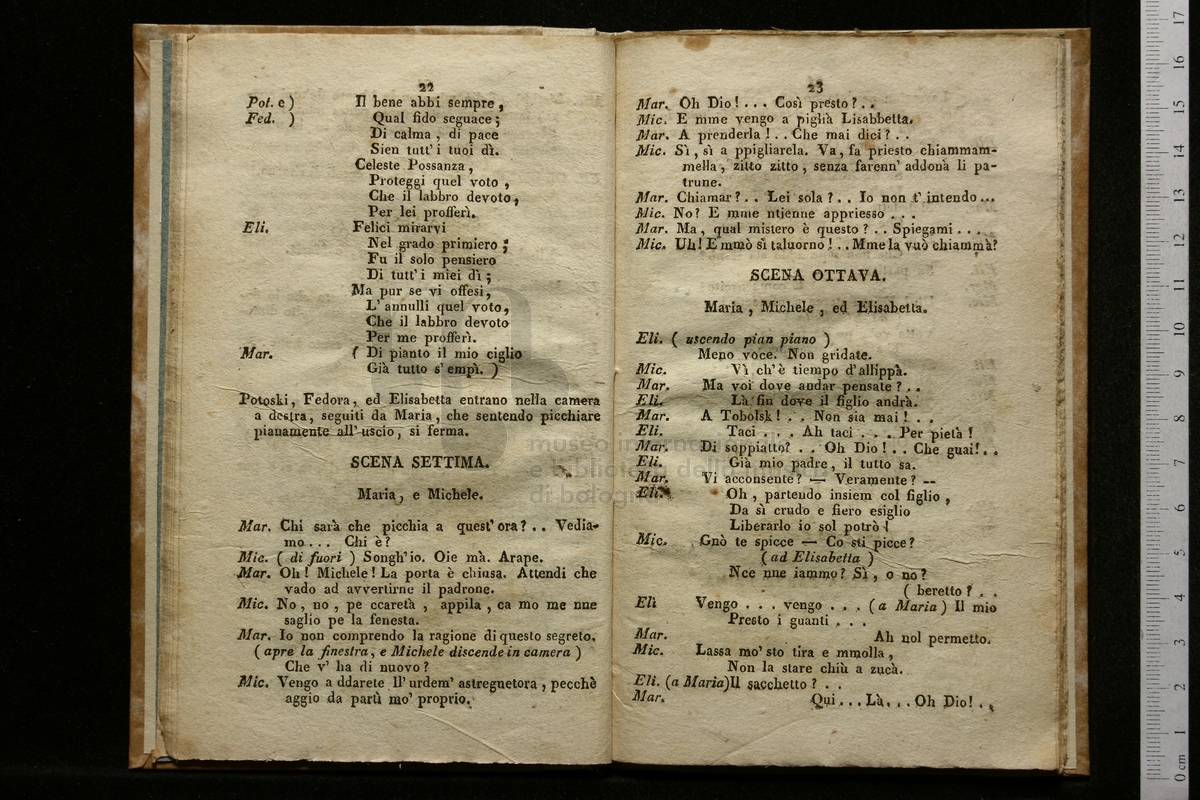 22
Pot. e ) Il bene abbi sempre,
Fed. ) Qual fido seguace;
Di calma, di pace
Sien tutt' i tuoi dì.
Celeste Possanza,
Proteggi quel voto,
Che il labbro devoto,
Per lei profferì.
Eli. Felici mirarvi
Nel grado primiero;
Fu il solo pensiero
Di tutt' i miei dì;
Ma pur se vi offesi,
L' annulli quel voto,
Che il labbro devoto
Per me profferì.
Mar. ( Di pianto il mio ciglio
Già tutto s' empì. )
Potoski, Fedora, ed Elisabetta entrano nella camera
a destra, seguiti da Maria, che sentendo picchiare
pianamente all' uscio, si ferma.
SCENA SETTIMA.
Maria, e Michele.
Mar. Chi sarà che picchia a quest' ora? . . Vedia-
mo . . . Chi è?
Mic. ( di fuori ) Songh' io. Oie mà. Arape.
Mar. Oh! Michele! La porta è chiusa. Attendi che
vado ad avvertirne il padrone.
Mic. No, no, pe ccaretà, appila, ca mo me nne
saglio pe la fenesta.
Mar. Io non comprendo la ragione di questo segreto.
( apre la finestra, e Michele discende in camera )
Che v' ha di nuovo?
Mic. Vengo a ddarete ll' urdem' astregnetora, pecchè
aggio da partì mo' proprio.
23
Mar. Oh Dio! . . . Così presto? . .
Mic. E mme vengo a piglià Lisabbetta.
Mar. A prenderla! . . Che mai dici? . .
Mic. Sì, sì a ppigliarela. Va, fa priesto chiammam-
mella, zitto zitto, senza farenn' addonà li pa-
trune.
Mar. Chiamar? . . Lei sola? . . Io non t' intendo...
Mic. No? E mme ntienne appriesso . . .
Mar. Ma, qual mistero è questo? . . Spiegami . . .
Mic. Uh! E mmò sì taluorno! . . Mme la vuò chiammà?
SCENA OTTAVA.
Maria, Michele, ed Elisabetta.
Eli. ( uscendo pian piano )
Meno voce. Non gridate.
Mic. Vì ch' è tiempo d' allippà.
Mar. Ma voi dove andar pensate? . .
Eli. Là fin dove il figlio andrà.
Mar. A Tobolsk! . . Non sia mai! . .
Eli. Taci . . . Ah taci . . . Per pietà!
Mar. Di soppiatto? . . Oh Dio! . . Che guai! . .
Eli. Già mio padre, il tutto sa.
Mar. Vi acconsente? — Veramente? --
Eli. Oh, partendo insiem col figlio,
Da sì crudo e fiero esiglio
Liberarlo io sol potrò!
Mic. Gnò te spicce — Co sti picce?
( ad Elisabetta )
Nce nne iammo? Sì, o no?
( beretto? . .
Eli Vengo . . . vengo . . . ( a Maria ) Il mio
Presto i guanti . . .
Mar. Ah nol permetto.
Mic. Lassa mo' sto tira e mmolla,
Non la stare chiù a zucà.
Eli. (a Maria) Il sacchetto? . .
Mar. Qui . . . Là . . . Oh Dio! . .
0 cm 1 2 3 4 5 6 7 8 9 10 11 12 13 14 15 16 17